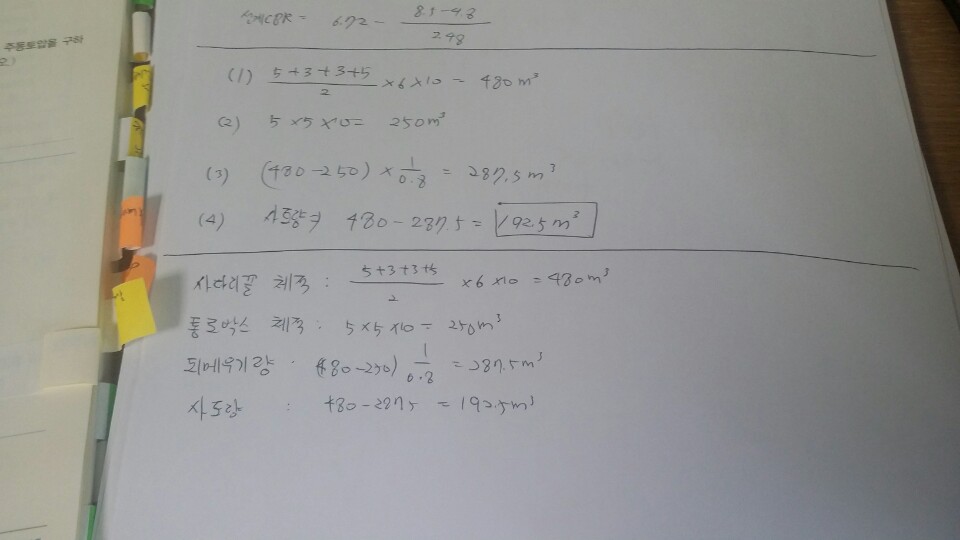 주동토압을 구하
요.)
설계CBR = 6.72 - \frac{8.5-4.8}{2.48}
(1) \frac{5+3+3+5}{2} ×6×10 = 480m³
(2) 5×5×10= 250m³
(3) (480-250) × \frac{1}{0.8} = 287.5m³
(4) 사토량⇒ 480-287.5 = 192.5m³
사다리꼴 체적 : \frac{5+3+3+5}{2} ×6×10 = 480m³
통로박스 체적 : 5×5×10= 250m³
되메우기량 : (480-250) \frac{1}{0.8} = 287.5m³
사토량 : 480-287.5 = 192.5m³